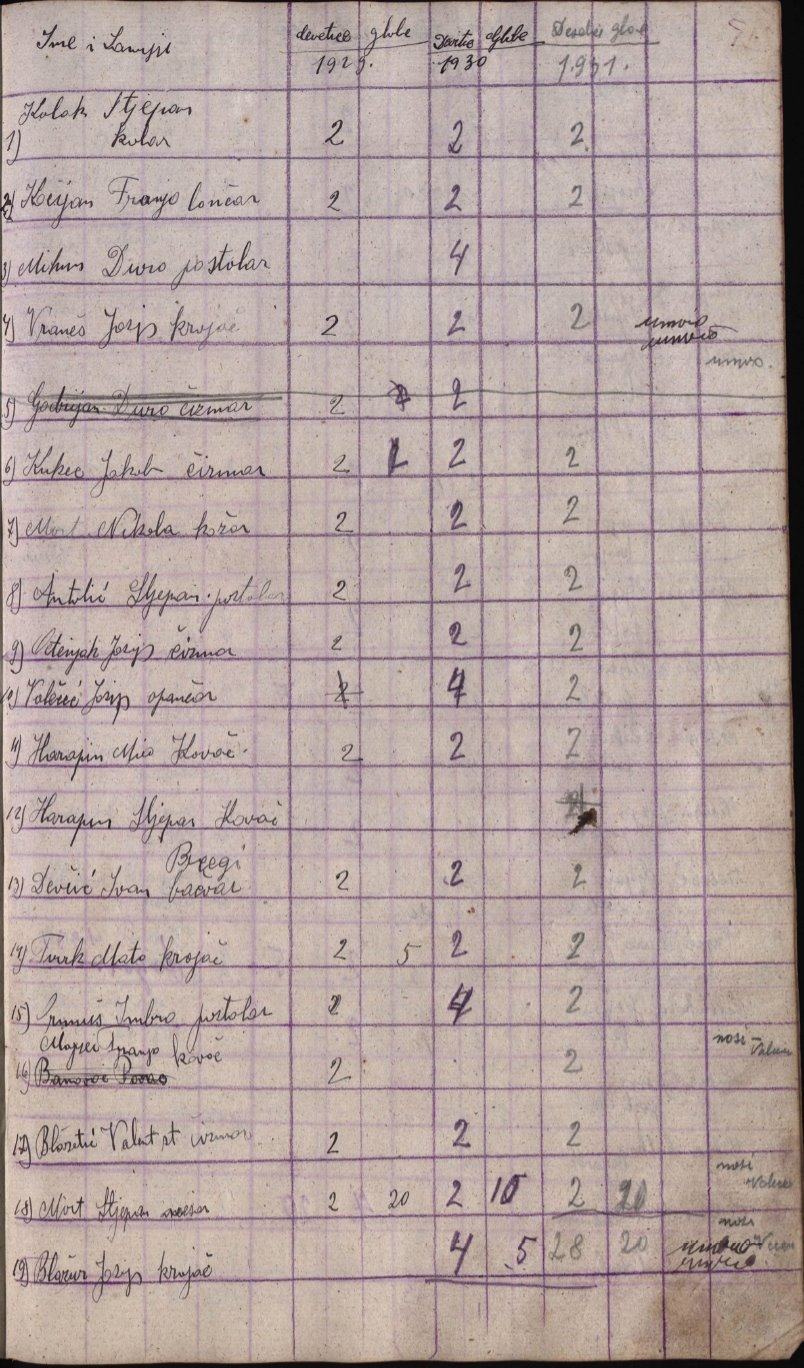 Ime i
devetice globe Globe
1929. 1930 1931.
Kolak Stjepan
1) kolar 2 2 2
2) Kocijan Franjo lončar 2 2 2
3) Mikus Đuro postolar 4
4) Vranes Josip krojač 2 2 2 umro
umro
umro.
5) Gabrijan Đuro čizmar 2 2
6) Kukec Jakob čizmar 2 2 2
7) Mort Nikola kožar 2 2 2
8) Antolić Stjepan postolar 2 2 2
9) Josip čizmar 2 2 2
10) Josip opančar 2 4 2
11) Harapin Mijo Kovač. 2 2 2
12) Harapin Stjepan Kovač
Bregi
13) Devčić Ivan bačvar 2 2 2
14) Turk Mato krojač 2 5 2 2
15) Imbro postolar 2 4 2
nosi
Franjo kovač
16) 2 2
17) Blažetić Valent st čizmar 2 2 2
nosi
18) Mort Stjepan 2 20 2 10 2 20
nosi
4 5 28 20 umro
19) Blažur Josip krojač